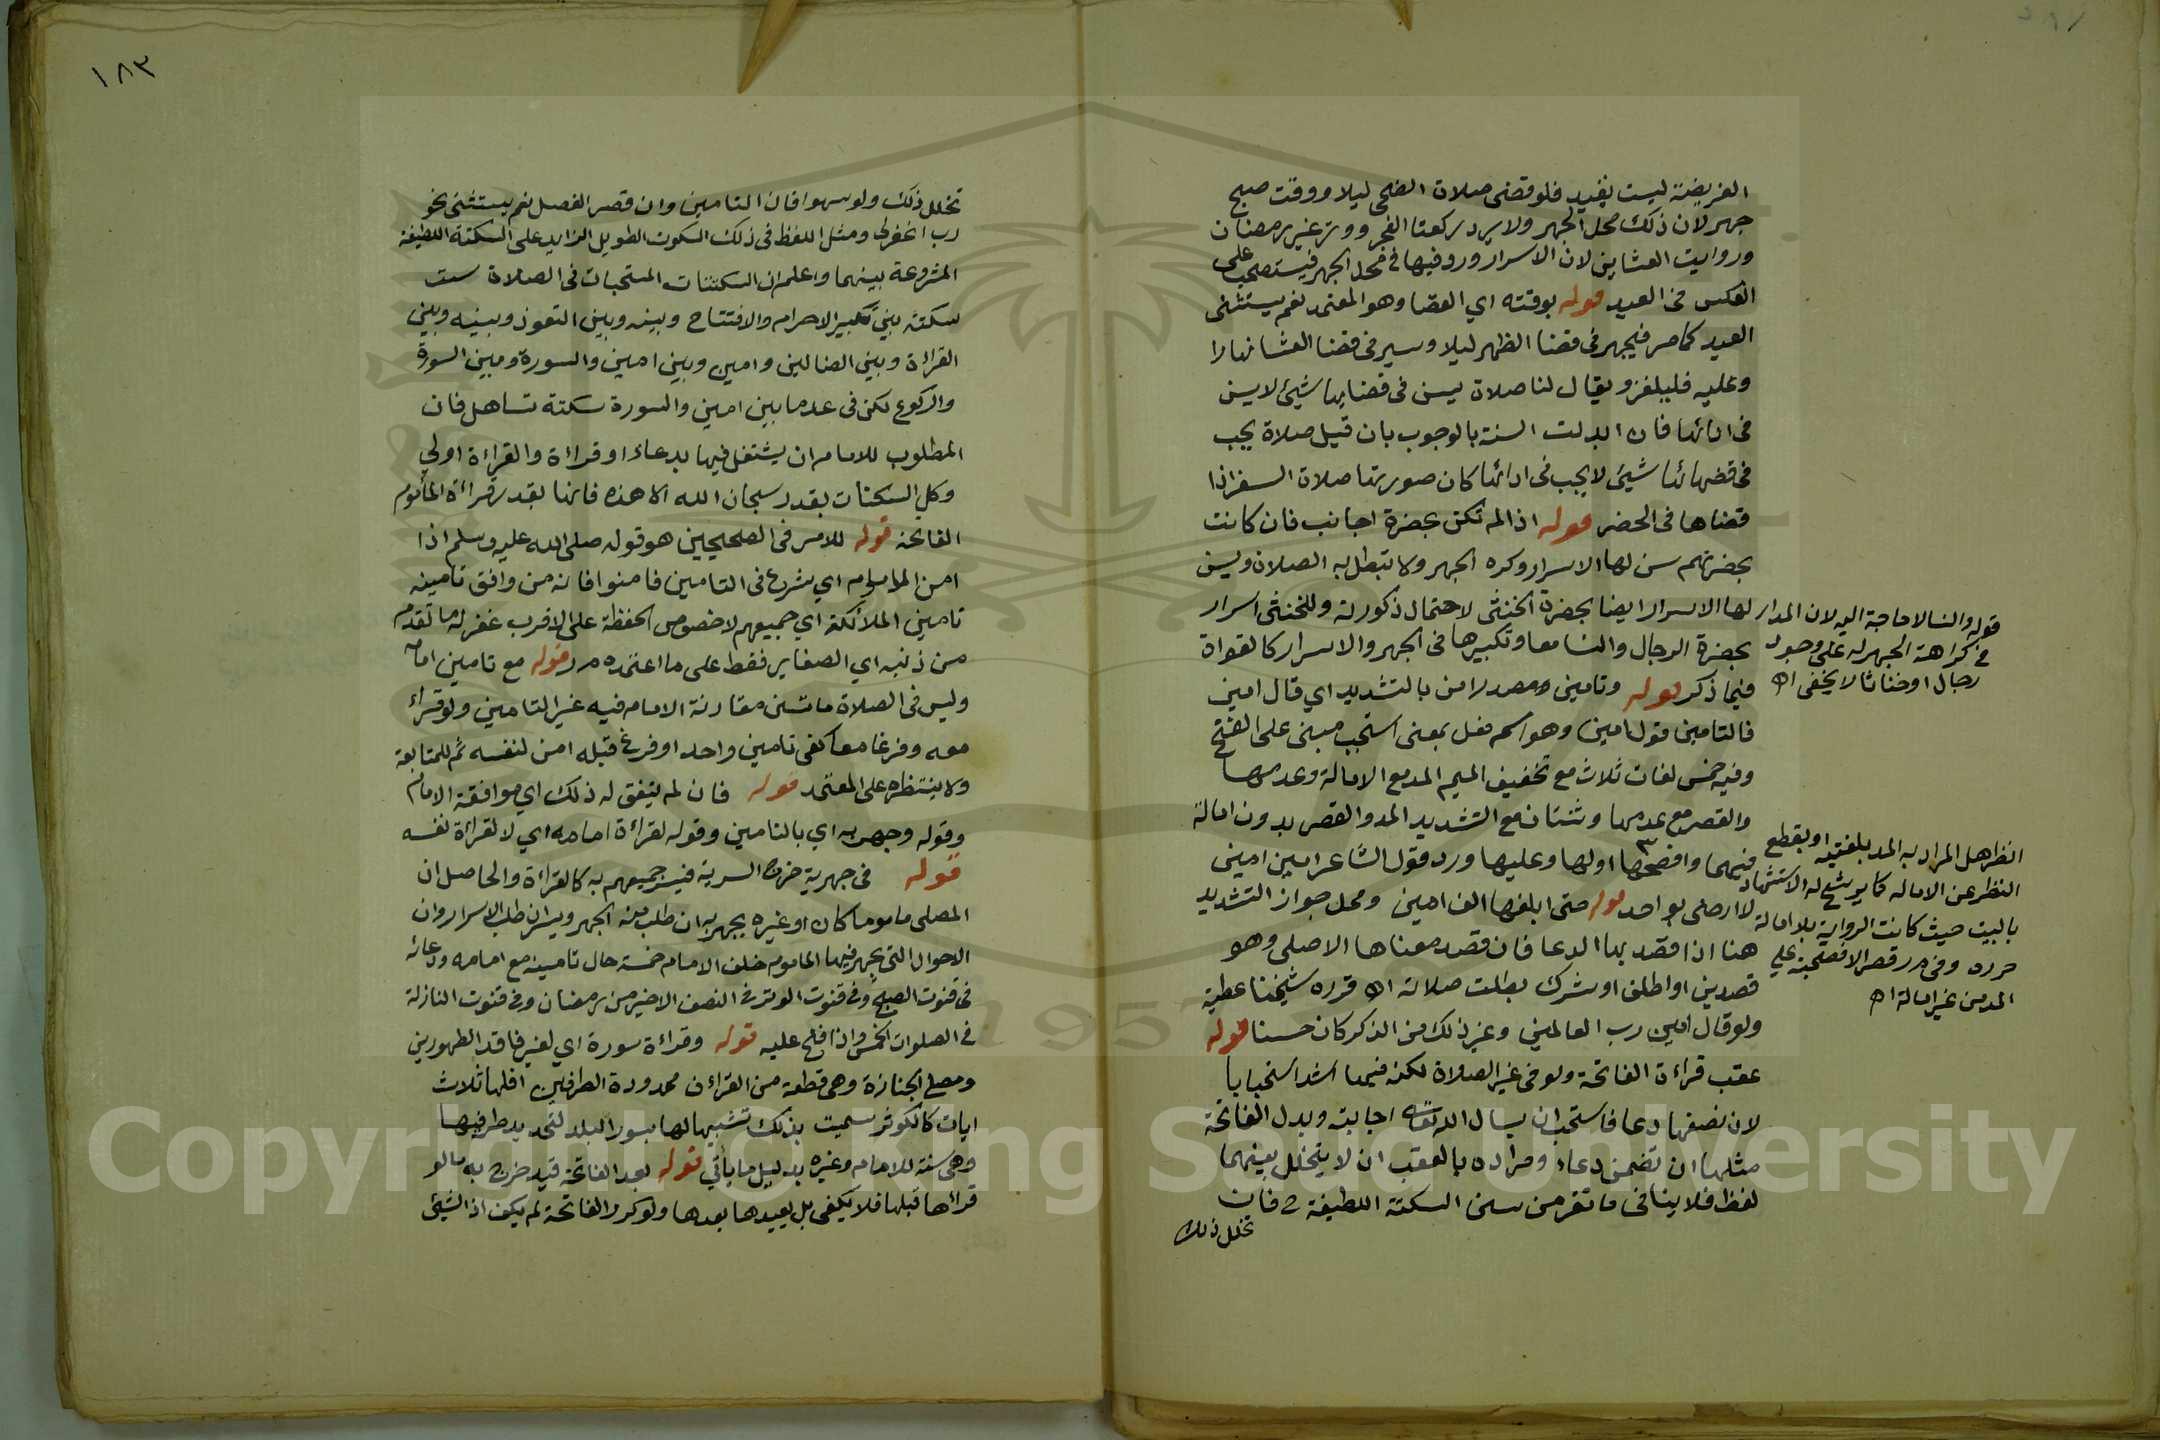 الفريضة ليست بقيد فلو قضى صلاة الضحى ليلا او وقت صبح
جهر لان ذلك محل الجهر ولا يرد ركعتا الفجر ووتر غير رمضان
ورواتب العشاين لان الاسرار ورد فيها في محل الجهر فيستصحب على
العكس في العيد قوله بوقته اي القضا وهو المعتمد نعم يستثنى
العيد كما مر فيجهر في قضا الظهر ليلا ويسر في قضا العشا نهارا
وعليه فليلغز ويقال لنا صلاة يسن في قضايها شيئ لا يسن
في ادائها فان ابدلت السنة بالوجوب بان قيل صلاة يجب
في قضائها شيئ لا يجب في ادائها كان صورتها صلاة السفر اذا
قضاها في الحضر قوله اذا لم تكن بحضرة اجانب فان كانت
بحضرتهم سن لها الاسرار وكره الجهر ولا تبطل به الصلاة ويسن
لها الاسرار ايضا بحضرة الخنثى لاحتمال ذكورته وللخنثى اسرار
بحضرة الرجال والنسا معا وتكبيرها في الجهر والاسرار كالقراة
فيما ذكر قوله وتامين مصدر امن بالتشديد اي قال امين
فالتامين قول امين وهو اسم فعل بمعنى استجب مبنى على الفتح
وفيه خمس لغات ثلاث مع تخفيف الميم المد مع الامالة وعدمها
والقصر مع عدمها وثنتان مع التشديد المد والقصر بدون امالة
فيهما وافصحها اولها وعليها ورد قول الشاعر امين امين
لا ارضى بواحد قوله حتى ابلغها الف امين ومحل جواز التشديد
هنا اذا قصد بها الدعا فان قصد معناها الاصلي وهو
قصدين او اطلق او شرك بطلت صلاته اه قرره شيخنا عطية
ولو قال امين رب العالمين وغير ذلك من الذكر كان حسنا قوله
عقب قراءة الفاتحة ولو في غير الصلاة لكنه فيها اشد استحبابا
لان نصفها دعا فاستحب ان يسال الله تعالى اجابته وبدل الفاتحة
مثلها ان تضمن دعاء ومراده بالعقب ان لا يتخلل بينهما
لفظ فلا ينافي ما تقرر من سن السكتة اللطيفة فان
تخلل ذلك
قوله والنسا لا حاجة اليه لان المدار
في كراهة الجهر له على وجود
رجال او خناثا لا يخفى اه
انظر هل المراد به المد بلغتيه او بقطع
النظر عن الاماله كما يرشح له الاستشهاد
بالبيت حيث كانت الرواية بلا امالة
حرره وفي م ر قصر الافصحية على
المد من غير امالة اه
١٨٣
تخلل ذلك ولو سهوا فات التامين وان قصر الفصل نعم يستثنى نحو
رب اغفر لي ومثل اللفظ في ذلك السكوت الطويل الزايد على السكتة اللطيفة
المشروعة بينهما واعلم ان السكتات المستحبات في الصلاة ست
سكتة بين تكبير الاحرام والافتتاح وبينه وبين التعوذ وبينه وبين
القراءة وبين الضالين وامين وبين امين والسورة وبين السورة
والركوع لكن في عد ما بين امين والسورة سكتة تساهل فان
المطلوب للامام ان يشتغل فيها بدعاء او قراءة والقراءة اولى
وكل السكتات بقدر سبحان الله الا هذه فانها بقدر قراءة المأموم
الفاتحة قوله للامر في الصحيحين هو قوله صلى الله عليه وسلم اذا
امن الامام اي شرع في التامين فامنوا فانه من وافق تامينه
تامين الملائكة اي جميعهم لا خصوص الحفظة على الاقرب غفر له ما تقدم
من ذنبه اي الصغاير فقط على ما اعتمده م ر قوله مع تامين امامه
وليس في الصلاة ما تسن مقارنة الامام فيه غير التامين ولو قراء
معه وفرغا معا كفى تامين واحد او فرغ قبله امن لنفسه ثم للمتابعة
ولا ينتظره على المعتمد قوله فان لم يتفق له ذلك اي موافقة الامام
وقوله وجهر به اي بالتامين وقوله لقراءة امامه اي لا لقراءة نفسه
قوله في جهرية خرج السرية فيسر جميعهم به كالقراءة والحاصل ان
المصلى ماموما كان او غيره يجهر به ان طلب منه الجهر ويسر ان طلب الاسرار وان
الاحوال التي يجهر فيها الماموم خلف الامام خمسة حال تامينه مع امامه ودعائه
في قنوت الصبح وفي قنوت الوتر في النصف الاخير من رمضان وفي قنوت النازلة
في الصلوات الخمس واذا فتح عليه قوله وقراءة سورة اي لغير فاقد الطهورين
ومصلي الجنازة وهي قطعة من القراءن محدودة الطرفين اقلها ثلاث
ايات كالكوثر سميت بذلك تشبيها لها بسور البلد لتحديد طرفيها
وهي سنة للامام وغيره بدليل ما يأتي قوله بعد الفاتحة قيد خرج به ما لو
قراها قبلها فلا يكفي بل يعيدها بعدها ولو كرر الفاتحة لم يكف اذ الشيئ
Copyright © King Saud University
1957